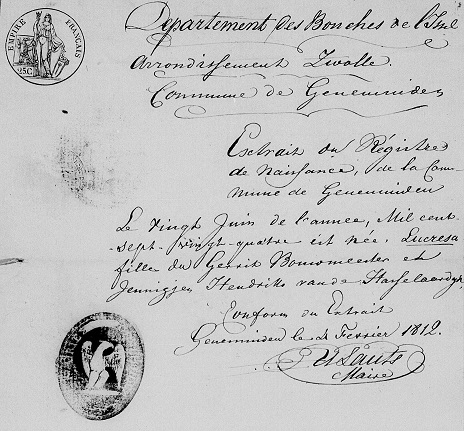 EMPIRE FRANÇAIS
25C
Departement des Bouches de l'Isel
Arrondissement Zwolle
Commune de Genemuiden
Extrait du Régistre
de Naissance, de la Com-
mune de Genemuiden
Le vingt Juin de l'annee, Mil cent
sept-vingt-quatre est née, Lucresa
fille du Gerrit Bouwmeester et
Jennigjen Hendriks van de
Conform du Extrait
Genemuiden le Fevrier 1812.
Maire